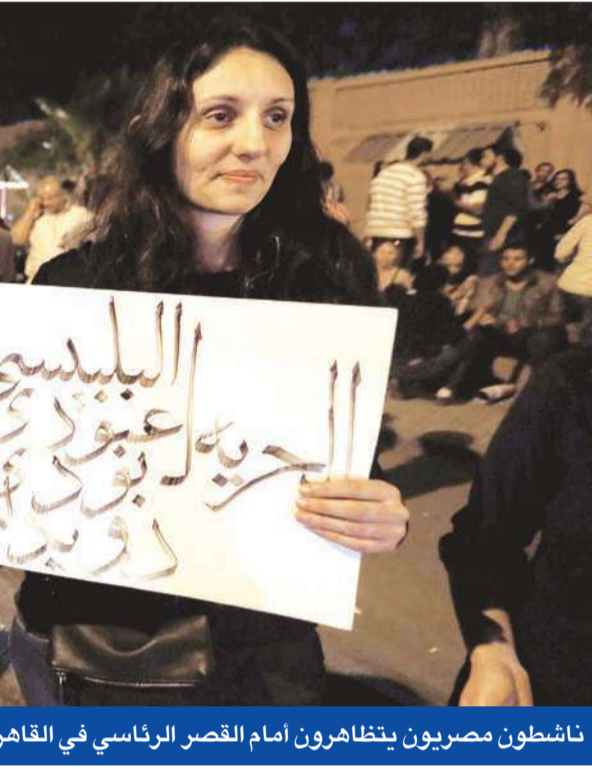 الحريه لـ
البلبيسي
عبودي
بودي
ناشطون مصريون يتظاهرون أمام القصر الرئاسي في القاهر